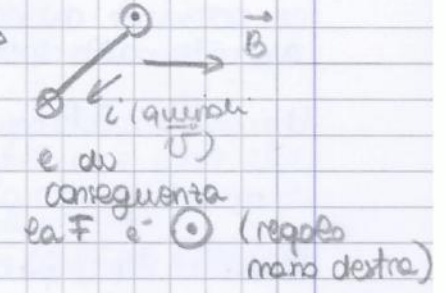 B
i (quindi
v)
e di
conseguenza
la F è ⊙ (regola
mano destra)